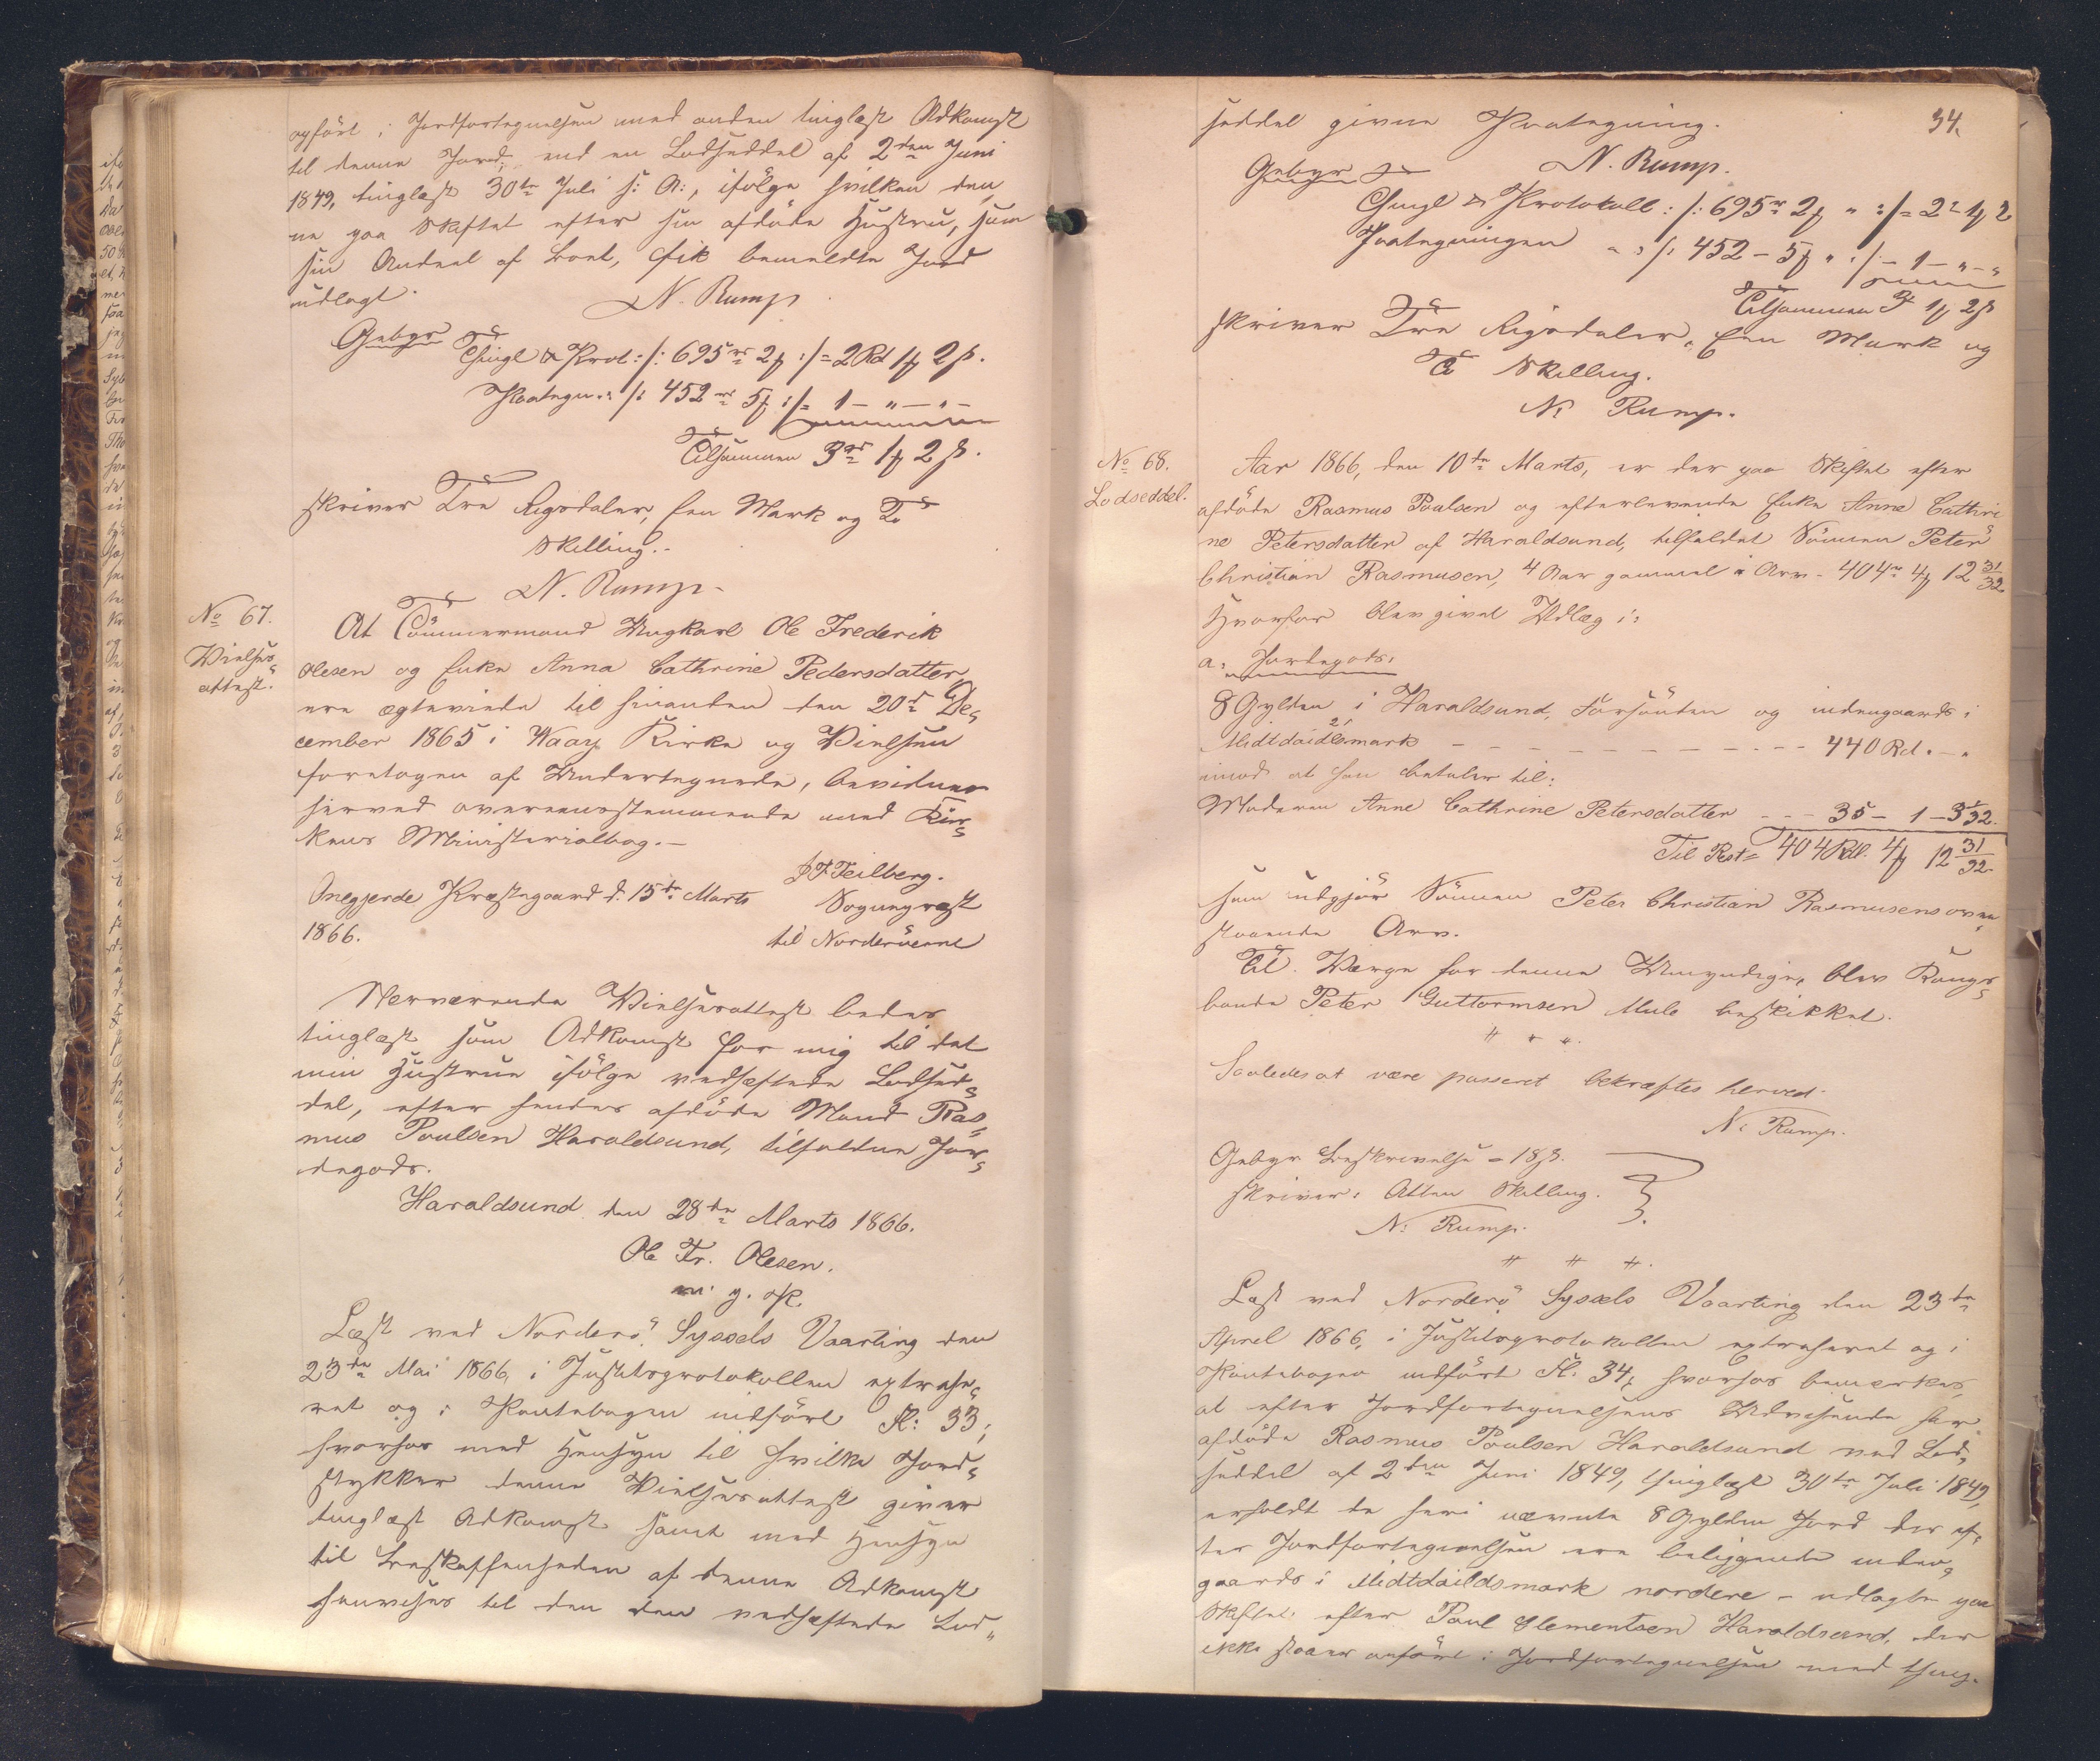 opført i Jordfortegnelsen med anden tinglæst Adkomst
til denne Jord, end en Lodseddel af 2den Juni
1849, tinglæst 30te Juli s: A:, ifølge hvilken den,
ne paa Skiftet efter sin afdøde Hustru, som
sin Andeel af Boet, fik bemeldte Jord
udlagt.
N. Rump.
Gebyr
Thingl & Prot: /: § 695 rd 2 ƒ :/ = 2 Rd 1 ƒ 2 ß.
Paategn: /: 452 rd 5 ƒ :/ = 1 – " – " –
Tilsammen 3 rd 1 ƒ 2 ß.
skriver Tre Rigsdaler, Een Mark og To
Skilling.-
N. Rump-
No 67.
Vielses
attest.
At Tømmermand Ungkarl Ole Frederik
Olesen og Enke Anna Cathrine Pedersdatter
ere ægteviede til hinanden den 20de De,
cember 1865 i Waay Kirke og Vielsen
foretagen af Undertegnede, bevidnes
herved overeensstemmende med Kir,
kens Ministerialbog.-
J F Feilberg.
Onegjerde Præstegaard d. 15de Marts
Sognepræst
1866.
til Norderöerne
Nærværende Vielsesattest bedes
tinglæst som Adkomst for mig til det
min Hustrue ifølge vedhæftede Lodsed,
del, efter hendes afdøde Mand Ras,
mus Poulsen Haraldsund, tilfaldne Jor,
degods.
Haraldsund den 28de Marts 1866.
Ole Fr. Olesen.
m. p. P.
Læst ved Norderø Syssels Vaarting den
23de Mai 1866, i Justitsprotokollen extrahe,
ret og i Pantebogen indført Fl: 33;
hvorhos med Hensyn til hvilke Jord,
stykker denne Vielsesattest giver
tinglæst Adkomst samt med Hensyn
til Beskaffenheden af denne Adkomst
henvises til den den vedhæftede Lod,
34.
seddel givne Paategning.
N. Rump.
Gebyr
Thingl & Protokoll: /: 695 rd 2 ƒ " :/ = 2 – 1 ƒ 2
Paategningen " : /: 452 – 5 ƒ " :/ – 1 – " – "
Tilsammen 3 1 ƒ 2 ß
skriver Tre Rigsdaler, Een Mark og
To Skilling.
N: Rump.
No 68.
Lodseddel.
Aar 1866, den 10de Marts, er der paa Skiftet efter
afdøde Rasmus Poulsen og efterlevende Enke Anne Cathri
ne Petersdatter af Haraldsund, tilfaldet Sönnen Peter
Christian Rasmusen, 4 Aar gammel i Arv - 404 rd 4 ƒ 12 31/32
Hvorfor blev givet Udlæg i:
a: Jordegods:
8 Gylden i Haraldsund, Larhönten og indengaards i
Midtdaidlsmark – – – – – – – – – – – 440 Rd. - "
imod at han betaler til:
Moderen Anne Cathrine Petersdatter - - - 35 – 1 – 3 1/32.
Til Rest = 404 Rdl. 4 ƒ 12 31/32
som udgjør Sönnen Peter Christian Rasmusens oven
staaende Arv.
Til Værge for denne Umyndige, blev Kongs,
bonde Peter Guttormsen Mule beskikket.
" " ".
Saaledes at være passeret bekræftes herved.
N: Rump.
Gebyr Beskrivelse = 18 ß.
skriver: Atten Skilling.
N: Rump.
" " ".
Læst ved Norderø Syssels Vaarting den 23de
April 1866, i Justitsprotokollen extraheret og i
Pantebogen indført Fl: 34, hvorhos bemærkes
at efter Jordfortegnelsens Udvisende har
afdøde Rasmus Poulsen Haraldsund ved Lod,
seddel af 2den Juni 1849, thinglæst 30te Juli 1849,
erholdt de heri nævnte 8 Gylden Jord der ef,
ter Jordfortegnelsen ere beliggende inden,
gaards i Midtdaildsmark nordere – udlagte paa
Skiftet efter Poul Clementsen Haraldsund, der
ikke staaer anført i Jordfortegnelsen med thing-